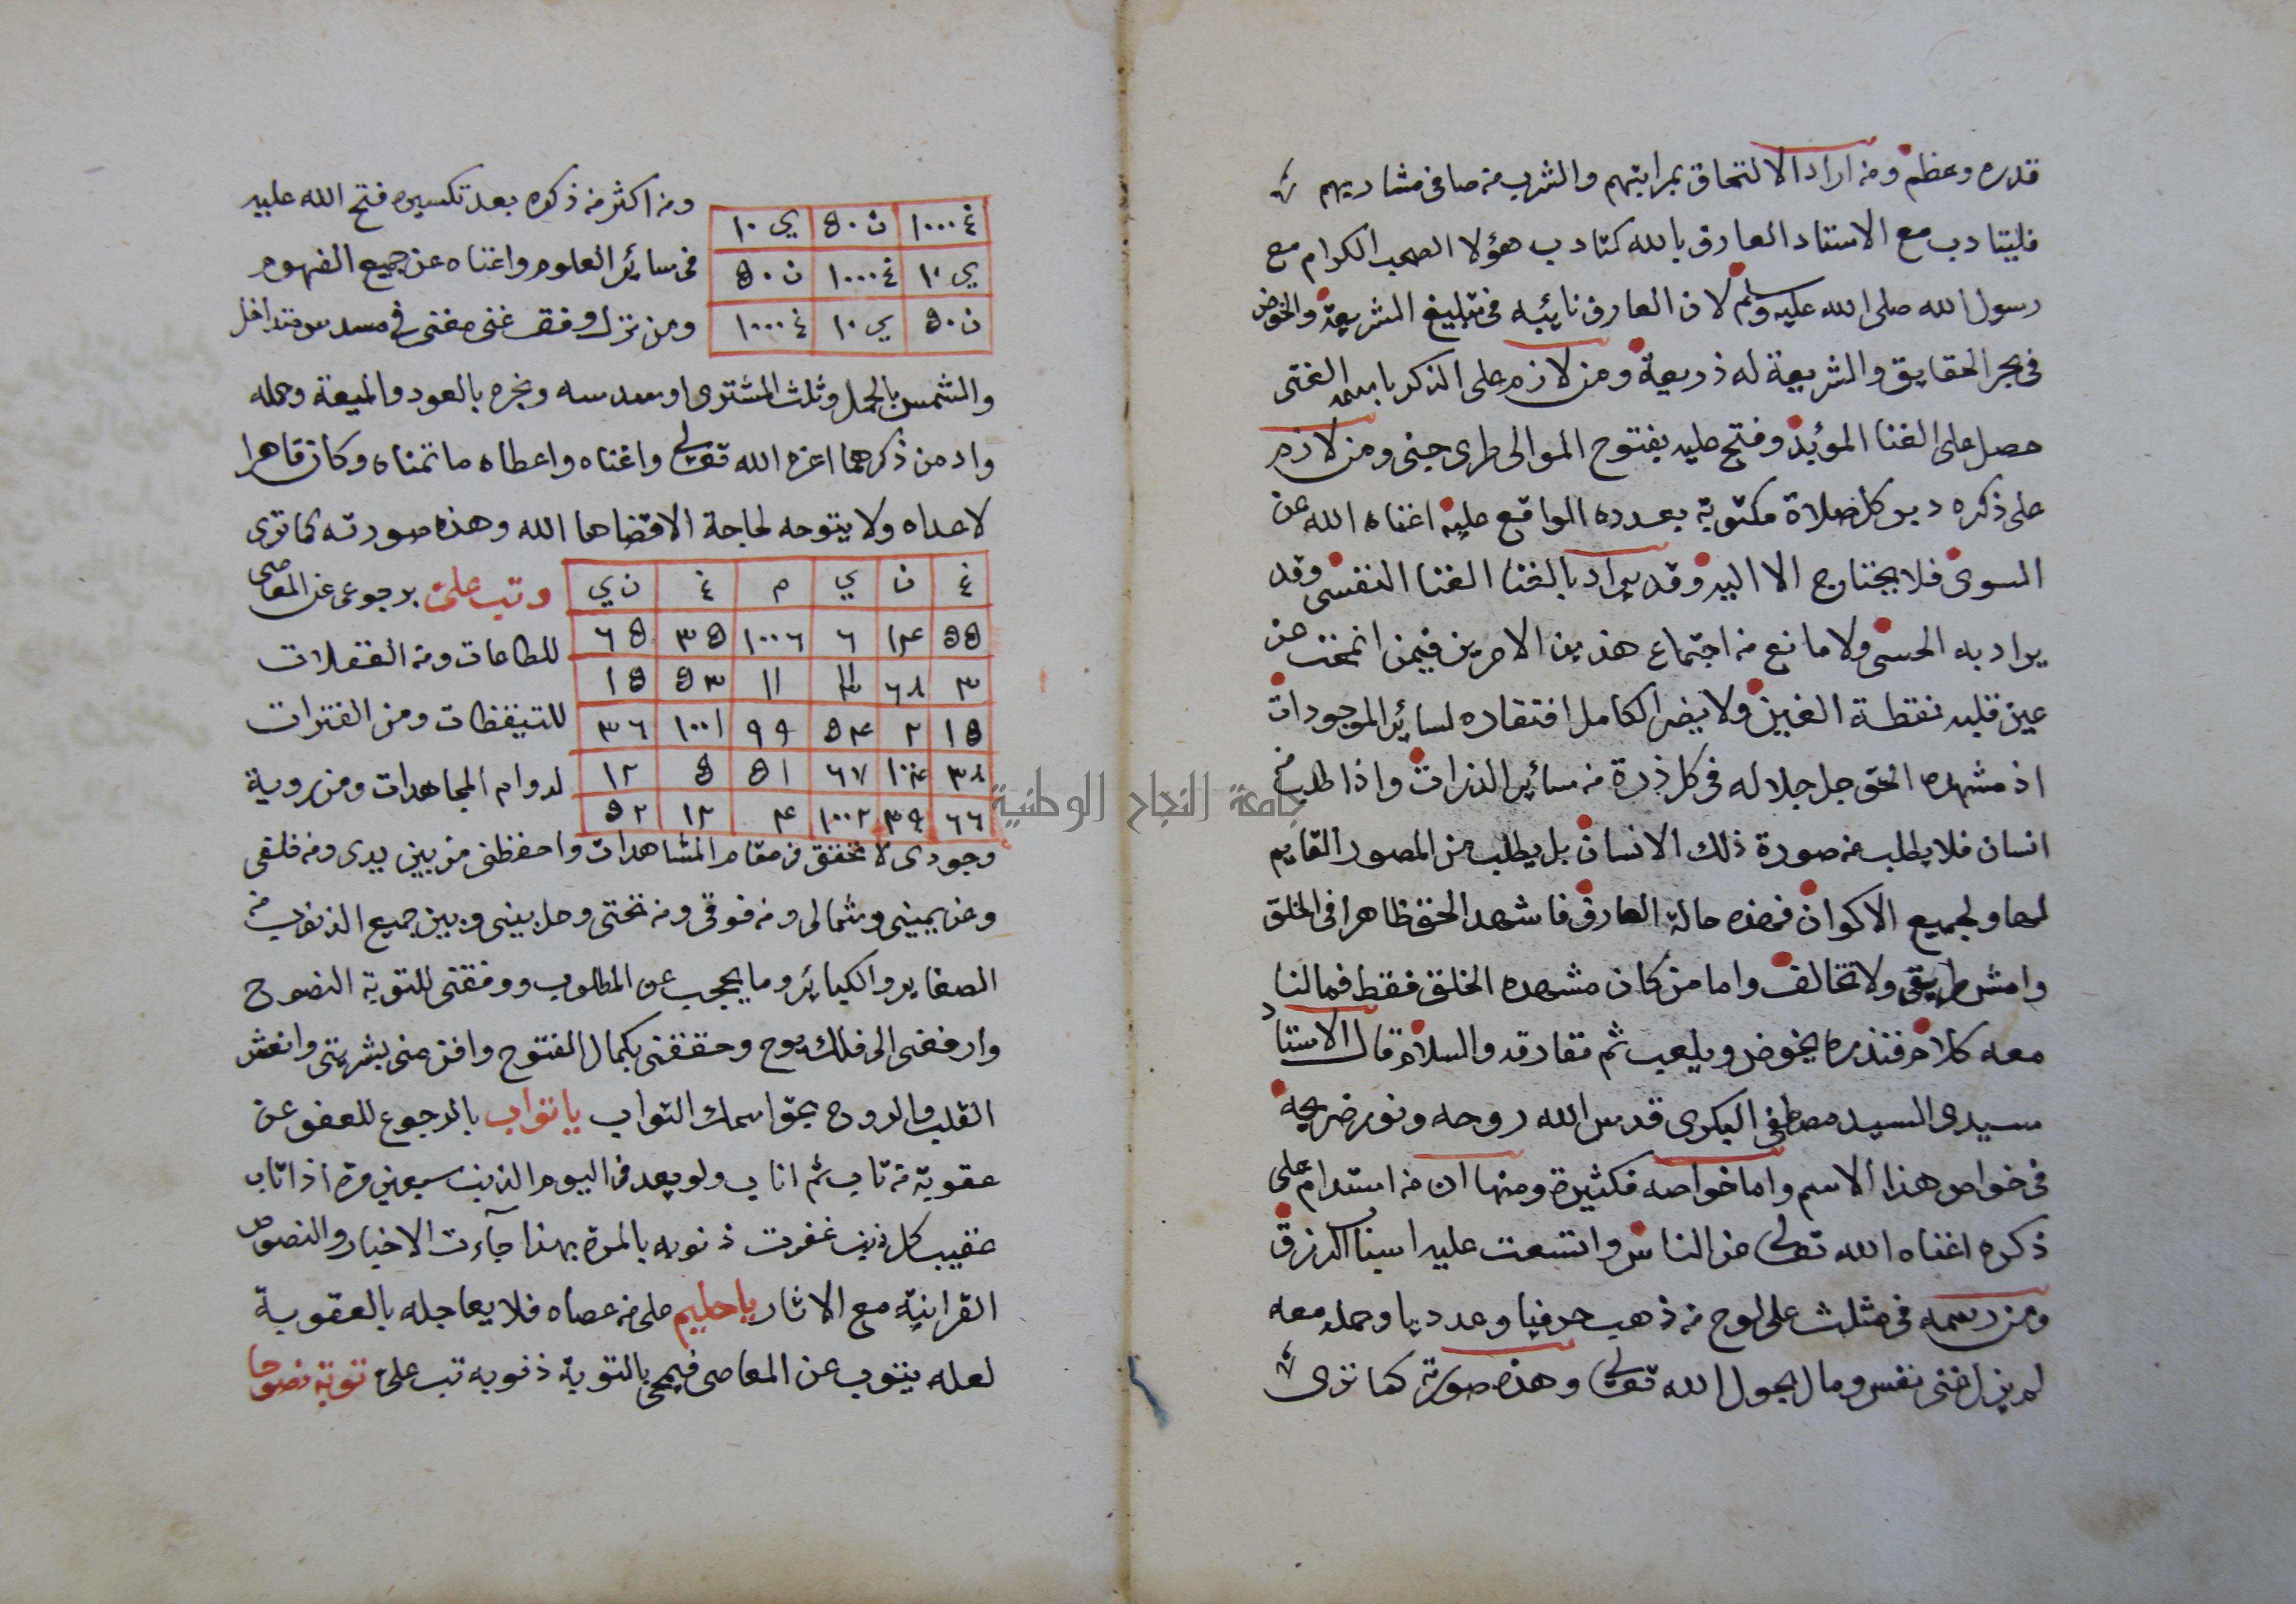 قدره وعظم ومن اراد الالتحاق بمراتبهم والشرب من صافى مشاربهم
فليتادب مع الاستاد العارف بالله كتادب هؤلا الصحب الكرام مع
رسول الله صلى الله عليه وسلم لان العارف نايبه فى تبليغ الشريعة والخوض
فى بحر الحقايق والشريعة له ذريعة ومن لازم على الذكر باسمه الغنى
حصل على الغنا المؤبد وفتح عليه بفتوح الموالى طرى جنى ومن لازم
على ذكره دبر كل صلاة مكتوبة بعدده الواقع عليه اغناه الله عن
السوى فلا يحتاج الا اليه وقد يراد بالغنا الغنا النفسى وقد
يراد به الحسى ولا مانع من اجتماع هذين الامرين فيمن انمحت عن
عين قلبه نقطة الغين ولا يضر الكامل افتقاده لسائر الموجودات
اذ مشهده الحق جل جلاله فى كل ذرة من سائر الذرات واذا طلب من
انسان فلا يطلب من صورة ذلك الانسان بل يطلب من المصور القايم
لها ولجميع الاكوان فهذه حالة العارف فاشهد الحق ظاهرا فى الخلق
وامش طريقى ولا تخالف واما من كان مشهده الخلق فقط فمالنا
معه كلام فنذره يخوض ويلعب ثم نفارقه والسلام قال الاستاد
سيدى السيد مصطفى البكرى قدس الله روحه ونور ضريحه
فى خواص هذا الاسم واما خواصه فكثيرة ومنها ان من استدام على
ذكره اغناه الله تعالى عن الناس واتسعت عليه اسباب الرزق
ومن رسمه فى مثلث على لوح من ذهب حرفيا وعدديا وحمله معه
لم يزل غنى نفس ومال بحول الله تعالى وهذه صورته كما ترى
غ ١٠٠٠ ن ٥٠ ي ١٠
ي ١٠ غ ١٠٠٠ ن ٥٠
ن ٥٠ ي ١٠ غ ١٠٠٠
ومن اكثر من ذكره بعد تكسيره فتح الله عليه
فى سائر العلوم واغناه عن جميع الفهوم
ومن نزل وفق غنى مغنى فى مسدس متداخل
والشمس بالحمل وثلث المشترى او سدسه وبخره بالعود والميعة وحمله
وادمن ذكرهما اعزه الله تعالى واغناه واعطاه ما تمناه وكان قاهرا
لاعداه ولا يتوجه لحاجة الا قضاها الله وهذه صورته كما ترى
غ ن ي م غ ن ي
٥٥ ١٣ ٦ ١٠٠٦ ٣٥ ٦٥
٣ ٦٨ ١١ ٥٣ ١٥
١٥ ٢ ٥٤ ٩٩ ١٠٠١ ٣٦
٣٨ ٦٧ ٥١ ٥ ١٢
٦٦ ٣٩ ١٠٠٢ ٤ ١٢ ٥٢
وتب على برجوعى عن المعاصى
للطاعات ومن الغفلات
للتيقظات ومن الفترات
لدوام المجاهدات ومن روية
وجودى لاتحقق فى مقام المشاهدات واحفظنى من بين يدى ومن خلفى
وعن يمينى وشمالى ومن فوقى ومن تحتى وحل بينى وبين جميع الذنوب من
الصغاير والكبائر وما يحجب عن المطلوب ووفقنى للتوبة النصوح
وارفعنى الى فلك يوح وحققنى بكمال الفتوح وافن عنى بشريتى وانعش
القلب والروح بحق اسمك التواب يا تواب بالرجوع للعفو عن
عقوبة من تاب ثم اناب ولو بعد فى اليوم الذنب سبعين مرة اذا تاب
عقيب كل ذنب غفرت ذنوبه بالمرة بهذا جآءت الاخبار والنصوص
القرانية مع الاثار يا حليم على من عصاه فلا يعاجله بالعقوبة
لعله يتوب عن المعاصى فيمحى بالتوبة ذنوبه تب على توبة نصوحا
جامعة النجاح الوطنية